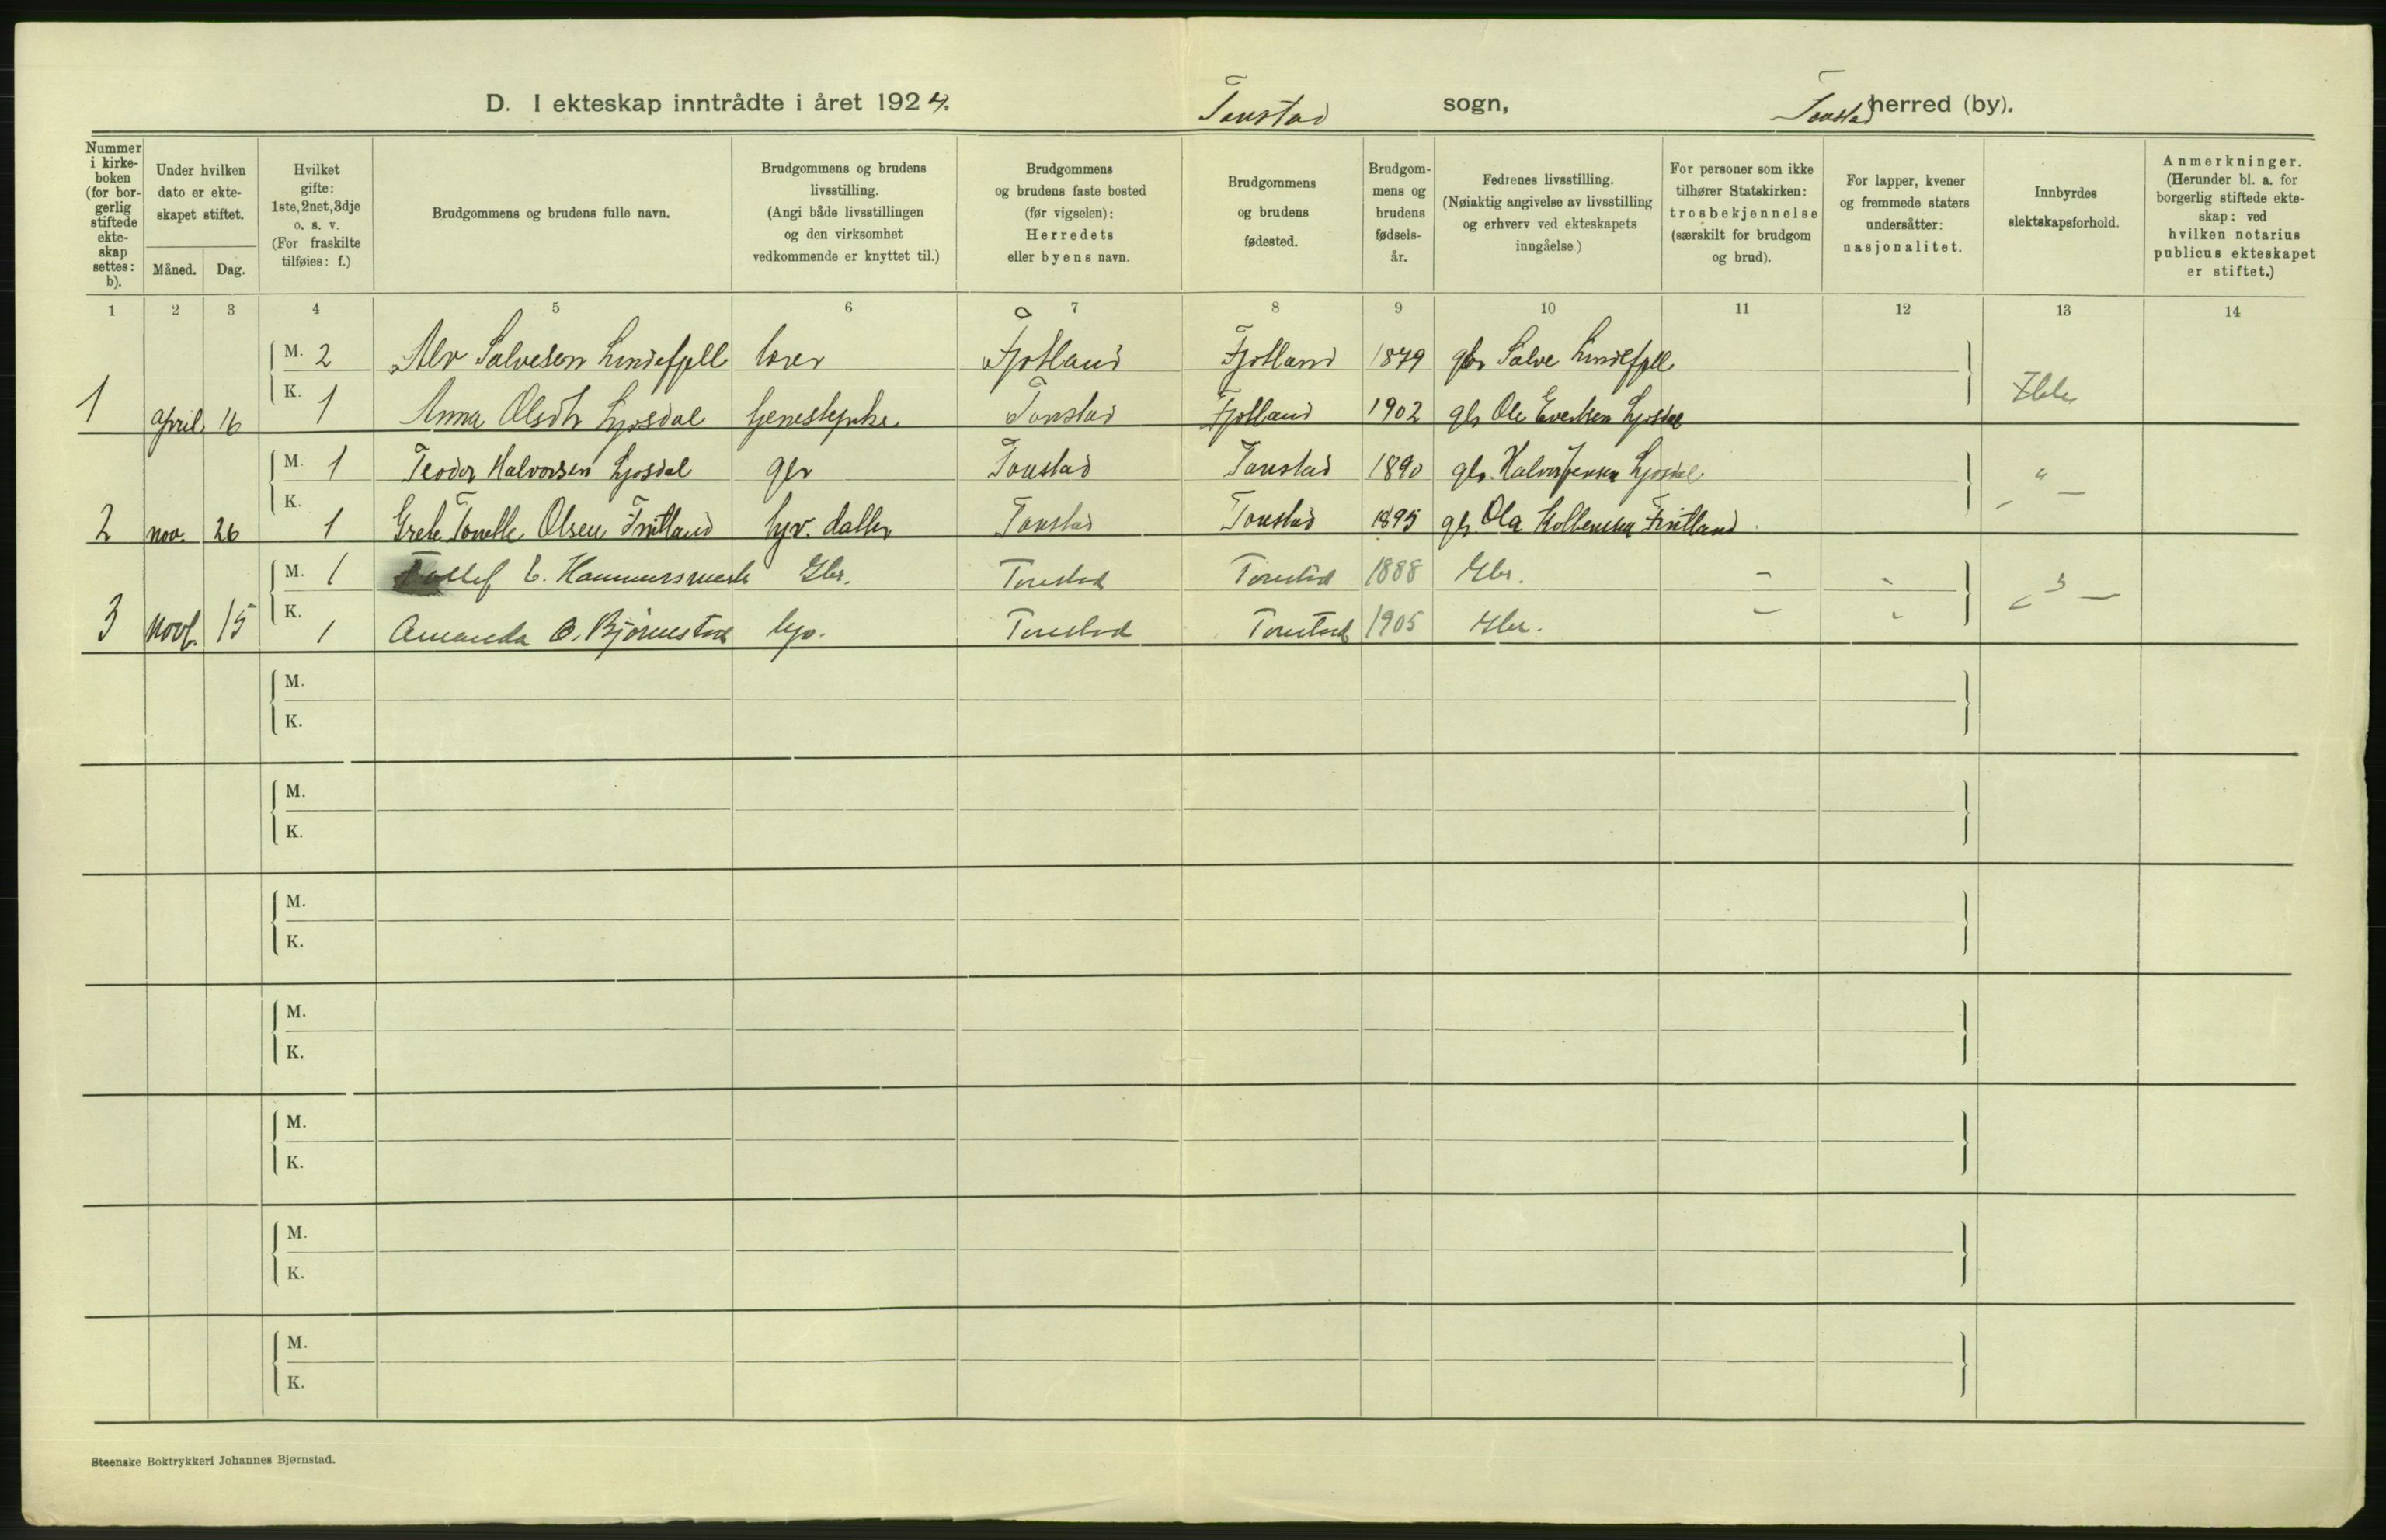 D. I ekteskap inntrådte i året 1924. Tonstad sogn, Tonstad herred (by).
Nummer i kirkeboken (for borgerlig stiftede ekteskap settes: b).
Under hvilken dato er ekteskapet stiftet.
Måned. Dag.
Hvilket gifte: 1ste, 2net, 3dje o. s. v. (For fraskilte tilføies: f.)
Brudgommens og brudens fulle navn.
Brudgommens og brudens livsstilling. (Angi både livsstillingen og den virksomhet vedkommende er knyttet til.)
Brudgommens og brudens faste bosted (før vigselen): Herredets eller byens navn.
Brudgommens og brudens fødested.
Brudgommens og brudens fødselsår.
Fedrenes livsstilling. (Nøiaktig angivelse av livsstilling og erhverv ved ekteskapets inngåelse)
For personer som ikke tilhører Statskirken: trosbekjennelse (særskilt for brudgom og brud).
For lapper, kvener og fremmede staters undersåtter: nasjonalitet.
Innbyrdes slektskapsforhold.
Anmerkninger. (Herunder bl. a. for borgerlig stiftede ekteskap: ved hvilken notarius publicus ekteskapet er stiftet.)
1 2 3 4 5 6 7 8 9 10 11 12 13 14
M. 2 Alv Salvesen Lindefjell lærer Fjotland Fjotland 1879 gbr Salve Lindefjell
1 april 16 K. 1 Anna Olsdtr Ljosdal Tonstad Fjotland 1902 gbr Ole Evertsen Ljosdal Ikke
M. 1 Teodor Halvorsen Ljosdal gbr Tonstad Tonstad 1890 gbr. Halvor Jensen Ljosdal - " -
2 nov. 26 K. 1 Grete Tonette Olsen Fintland hjv. datter Tonstad Tonstad 1895 gbr Ola Kolbensen Fintland.
M. 1 Tollef T. Hammersmark Gbr. Tonstad Tonstad 1888 Gbr. - - - " -
3 Novb. 15 K. 1 Amanda O. Bjørnestad hjv. Tonstad Tonstad 1905 Gbr. - -
M.
K.
M.
K.
M.
K.
M.
K.
M.
K.
M.
K.
M.
K.
Steenske Boktrykkeri Johannes Bjørnstad.